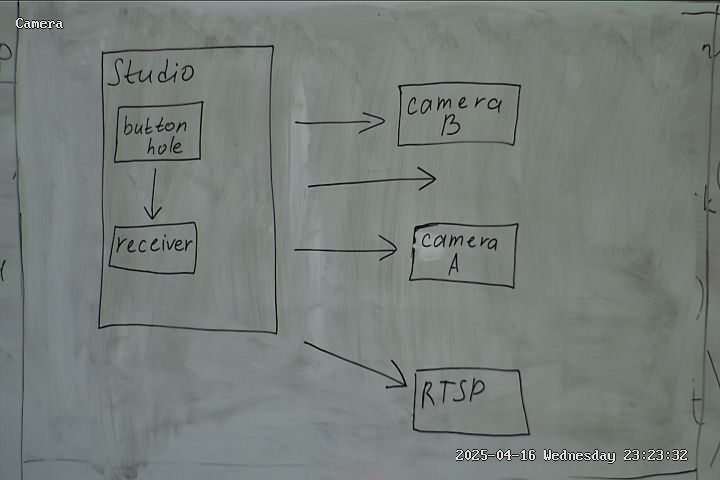 Camera
Studio
button
hole
receiver
camera
B
camera
A
RTSP
2025-04-16 Wednesday 23:23:32